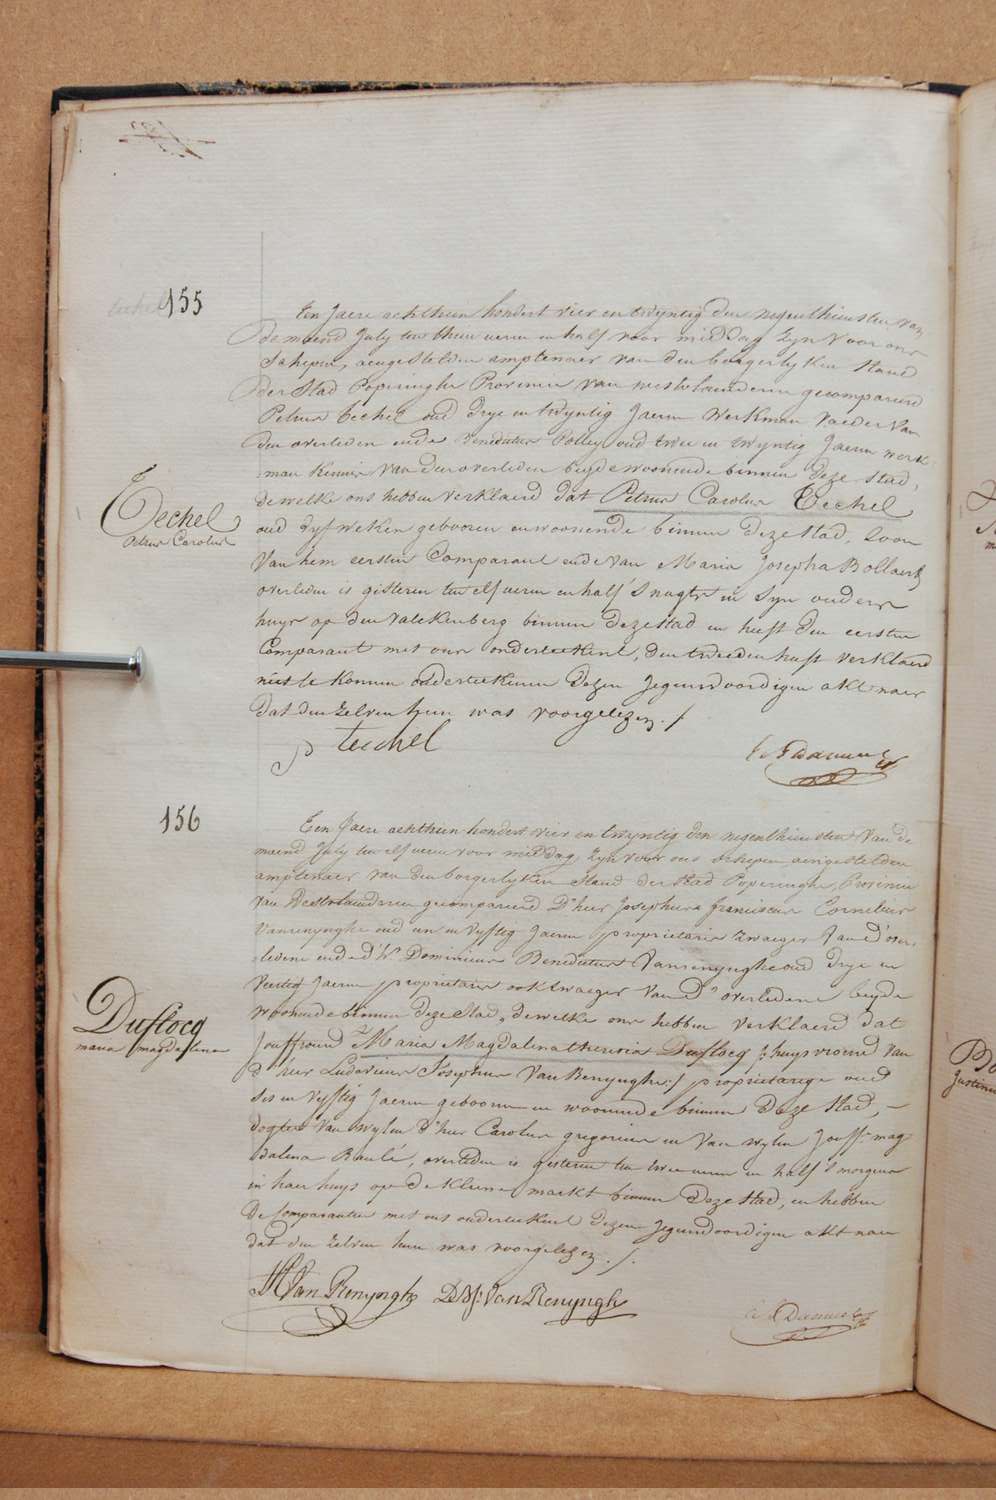 155
Een Jaere achthien hondert vier en twyntig den negenthiensten van
de maend July ten thien ueren en half voor middag zyn voor ons
Schepen, aengestelden amptenaer van den borgerlyken Stand
der Stad Poperinghe Provincie van westvlaenderen gecompareerd
Petrus Techel oud drye en twyntig Jaeren Werkman Vaeder Van
den overleden ende Benedictus Polley oud twee en twyntig Jaeren werk
man kennis van den overleden beyde woonende binnen deze stad,
dewelke ons hebben verklaerd dat Petrus Carolus Techel
oud vyf weken gebooren en woonende binnen deze stad, Zoon
Van hem eersten Comparant ende van Maria Josepha Bollaert
overleden is gisteren ten elf ueren en half 's nagts in syn ouders
huys op den valekenberg binnen deze stad en heeft den eersten
Comparant met ons onderteekent, den tweeden heeft verklaerd
niet te konnen onderteekenen dezen Jegenswoordigen akt naer
dat den zelven hun was voorgelezen ./
Techel
Petrus Carolus
p techel
156
Een Jaere achthien hondert vier en twyntig den negenthiensten Van de
maend July ten elf ueren voor middag, zyn voor ons schepen aengestelden
amptenaer van den borgerlyken Stand der stad Poperinghe, Provincie
van Westvlaenderen gecompareerd D'heer Josephus franciscus Cornelius
Vanrenynghe oud een en vyftig Jaeren proprietaris Zwaeger Van d'over
ledene ende d'hr Dominicus Benedictus Vanrenynghe oud drye en
Veertig Jaeren proprietaris ook Zwaeger Van d'overledene beyde
woonende binnen deze Stad, dewelke ons hebben verklaerd dat
Jouffrouw Maria Magdalena theresia Duflocq /: huysvrouw Van
d'heer Ludovicus Josephus Van Renynghe :/ proprietarige oud
ses en vyftig Jaeren gebooren en woonende binnen deze stad, -
dogter Van wylen d'heer Carolus gregorius en Van wylen Jouff. mag
dalena Baulé, overleden is gisteren ten twee ueren en half 's morgens
in haer huys op de kleene markt binnen deze stad, en hebben
de Comparanten met ons onderteekent dezen Jegenswoordigen akt naer
dat den zelven hun was voorgelezen ./.
Duflocq
maria magdalena
Van Renynghe D. B. Van Renynghe